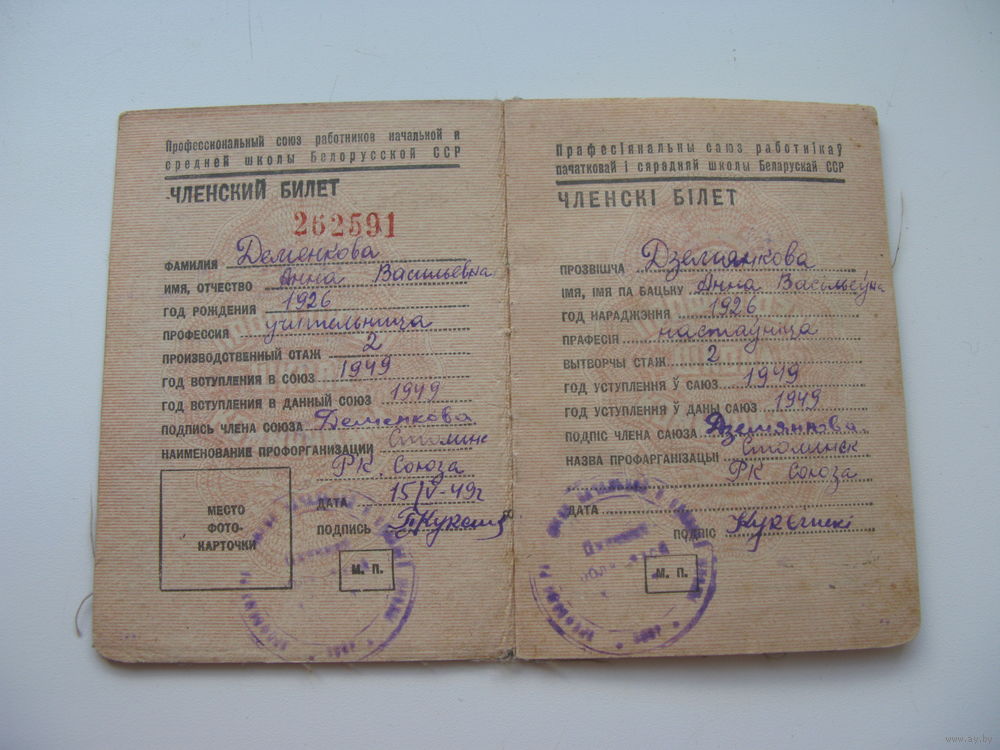 Профессиональный союз работников начальной и
средней школы Белорусской ССР
ЧЛЕНСКИЙ БИЛЕТ
262591
ФАМИЛИЯ Деменкова
ИМЯ, ОТЧЕСТВО Анна Васильевна
ГОД РОЖДЕНИЯ 1926
ПРОФЕССИЯ учительница
ПРОИЗВОДСТВЕННЫЙ СТАЖ 2
ГОД ВСТУПЛЕНИЯ В СОЮЗ 1949
ГОД ВСТУПЛЕНИЯ В ДАННЫЙ СОЮЗ 1949
ПОДПИСЬ ЧЛЕНА СОЮЗА Деменкова
НАИМЕНОВАНИЕ ПРОФОРГАНИЗАЦИИ Столинс
РК Союза
ДАТА 15/V-49г
ПОДПИСЬ
МЕСТО
ФОТО-
КАРТОЧКИ
М. П.
Прафесіянальны саюз работнікаў
пачатковай і сярэдняй школы Беларускай ССР
ЧЛЕНСКІ БІЛЕТ
ПРОЗВІШЧА Дземянкова
ІМЯ, ІМЯ ПА БАЦЬКУ Анна Васільеўна
ГОД НАРАДЖЭННЯ 1926
ПРАФЕСІЯ настаўніца
ВЫТВОРЧЫ СТАЖ 2
ГОД УСТУПЛЕННЯ Ў САЮЗ 1949
ГОД УСТУПЛЕННЯ Ў ДАНЫ САЮЗ 1949
ПОДПІС ЧЛЕНА САЮЗА Дземянкова
НАЗВА ПРОФАРГАНІЗАЦЫІ Столинск
РК Союза
ДАТА
ПОДПІС
М. П.
www.ay.by